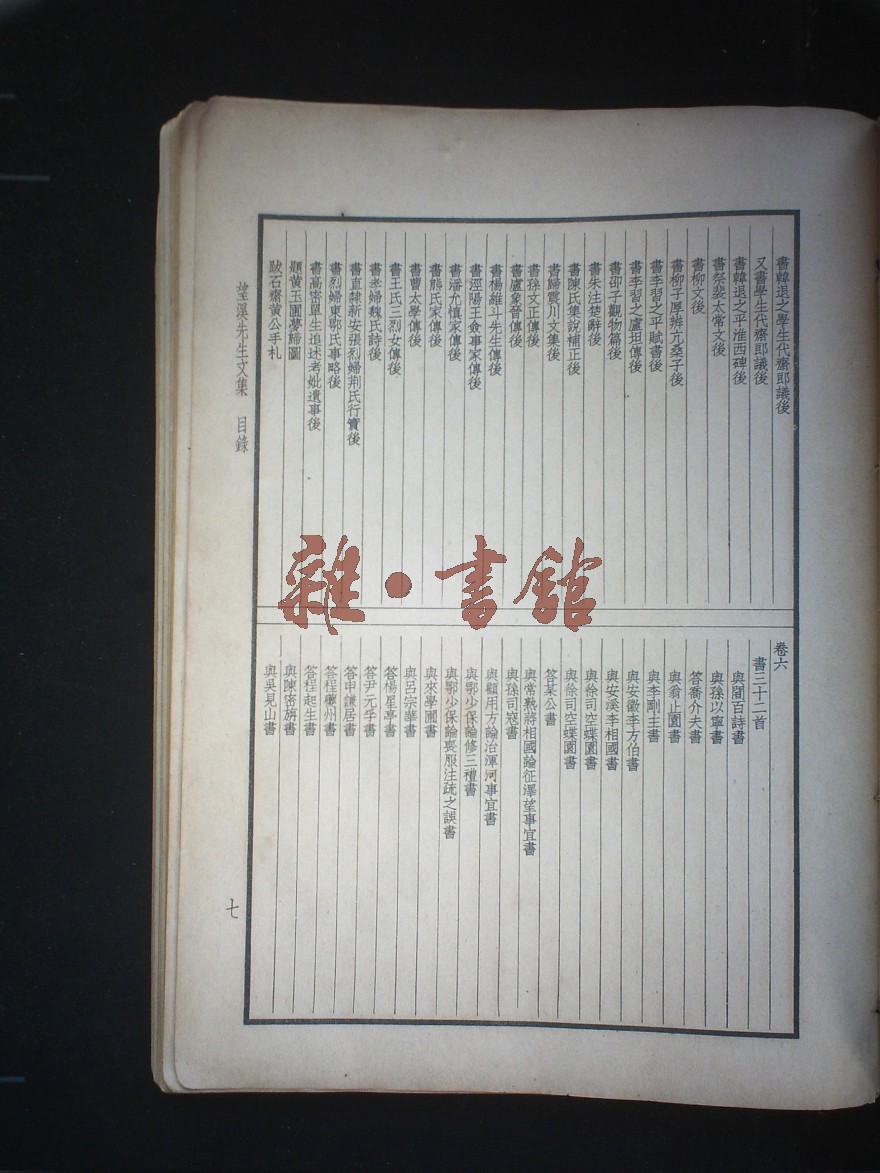 書韓退之學生代齋郎議後
又書學生代齋郎議後
書韓退之平淮西碑後
書祭裴太常文後
書柳文後
書柳子厚辨亢桑子後
書李習之平賦書後
書李習之盧坦傳後
書邵子觀物篇後
書朱注楚辭後
書陳氏集說補正後
書歸震川文集後
書孫文正傳後
書盧象晉傳後
書楊維斗先生傳後
書涇陽王僉事家傳後
書潘允慎家傳後
書熊氏家傳後
書曹太學傳後
書王氏三烈女傳後
書孝婦魏氏詩後
書直隸新安張烈婦荆氏行實後
書烈婦東鄂氏事略後
書高密單生追述考妣遺事後
題黃玉圃夢歸圖
跋石齋黃公手札
卷六
書三十二首
與閻百詩書
與孫以寧書
答喬介夫書
與翁止園書
與李剛主書
與安徽李方伯書
與安溪李相國書
與徐司空蝶園書
與徐司空蝶園書
答某公書
與常熟蔣相國論征澤望事宜書
與孫司寇書
與顧用方論治渾河事宜書
與鄂少保論修三禮書
與鄂少保論喪服注疏之誤書
與來學圃書
與呂宗華書
答楊星亭書
答尹元孚書
答申謙居書
答程夔州書
答程起生書
與陳密旃書
與吳見山書
望溪先生文集 目錄
七
雜·書館